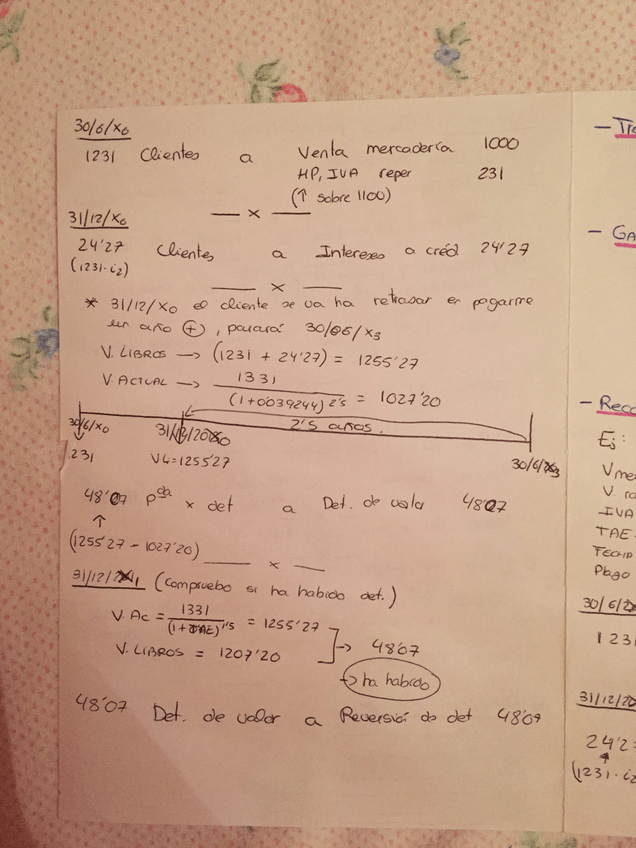 30/6/X0
1231 Clientes a Venta mercadería 1000
HP, IVA reper 231
(↑ sobre 1100)
— x —
31/12/X0
24'27 Clientes a Intereses a créd 24'27
(1231·i2)
— x —
* 31/12/X0 el cliente se va ha retrasar en pagarme
un año (+), pasará 30/06/X3
V. LIBROS → (1231 + 24'27) = 1255'27
V. ACTUAL → 1331 / (1+0'039244)^2'5 = 1027'20
2'5 años.
30/6/X0
1231
31/12/20X0
VL=1255'27
30/6/X3
48'07 Pda x det a Det. de valor 4807
↑
(1255'27 - 1027'20)
— x —
31/12/X1 (Compruebo si ha habido det.)
V. Ac = 1331 / (1+TAE)^1'5 = 1255'27
V. LIBROS = 1207'20
→ 48'07
→ ha habido
48'07 Det. de valor a Reversió de det 48'07
— GA
— Reco
Ej:
V me
V. ra
IVA
TAE
FECHA
Pago
30/6/2
1 23
31/12/20
24'2
(1231·i2